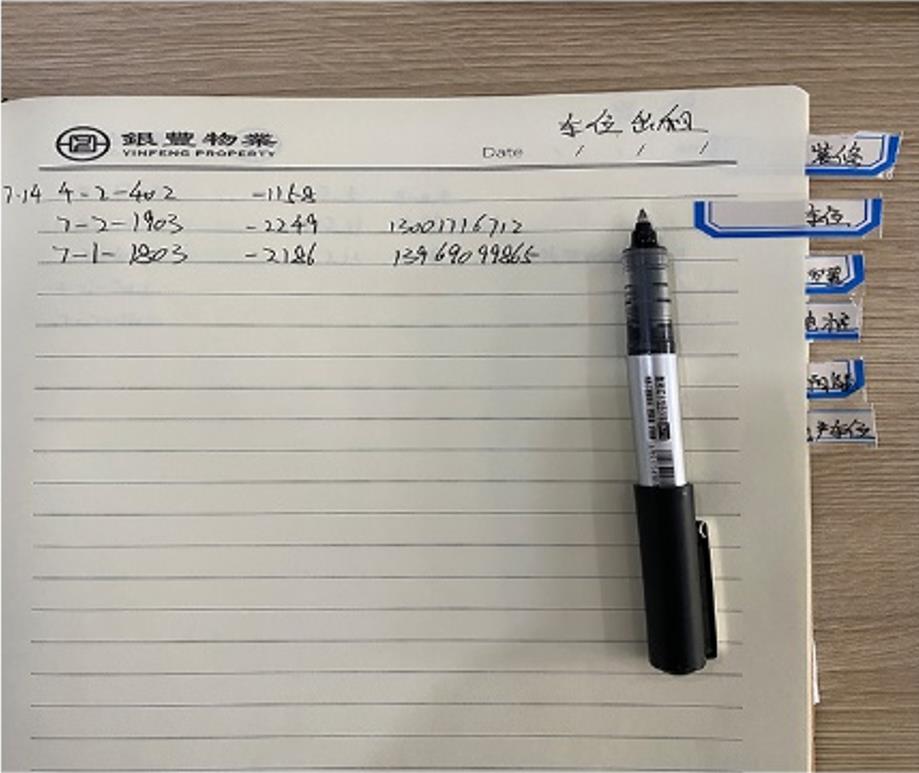 銀豐物業
YINFENG PROPERTY
车位出租
Date / / /
7.14 4-2-402 -1158
7-2-1903 -2249 13001716712
7-1-1803 -2186 13969099865
装修
车位